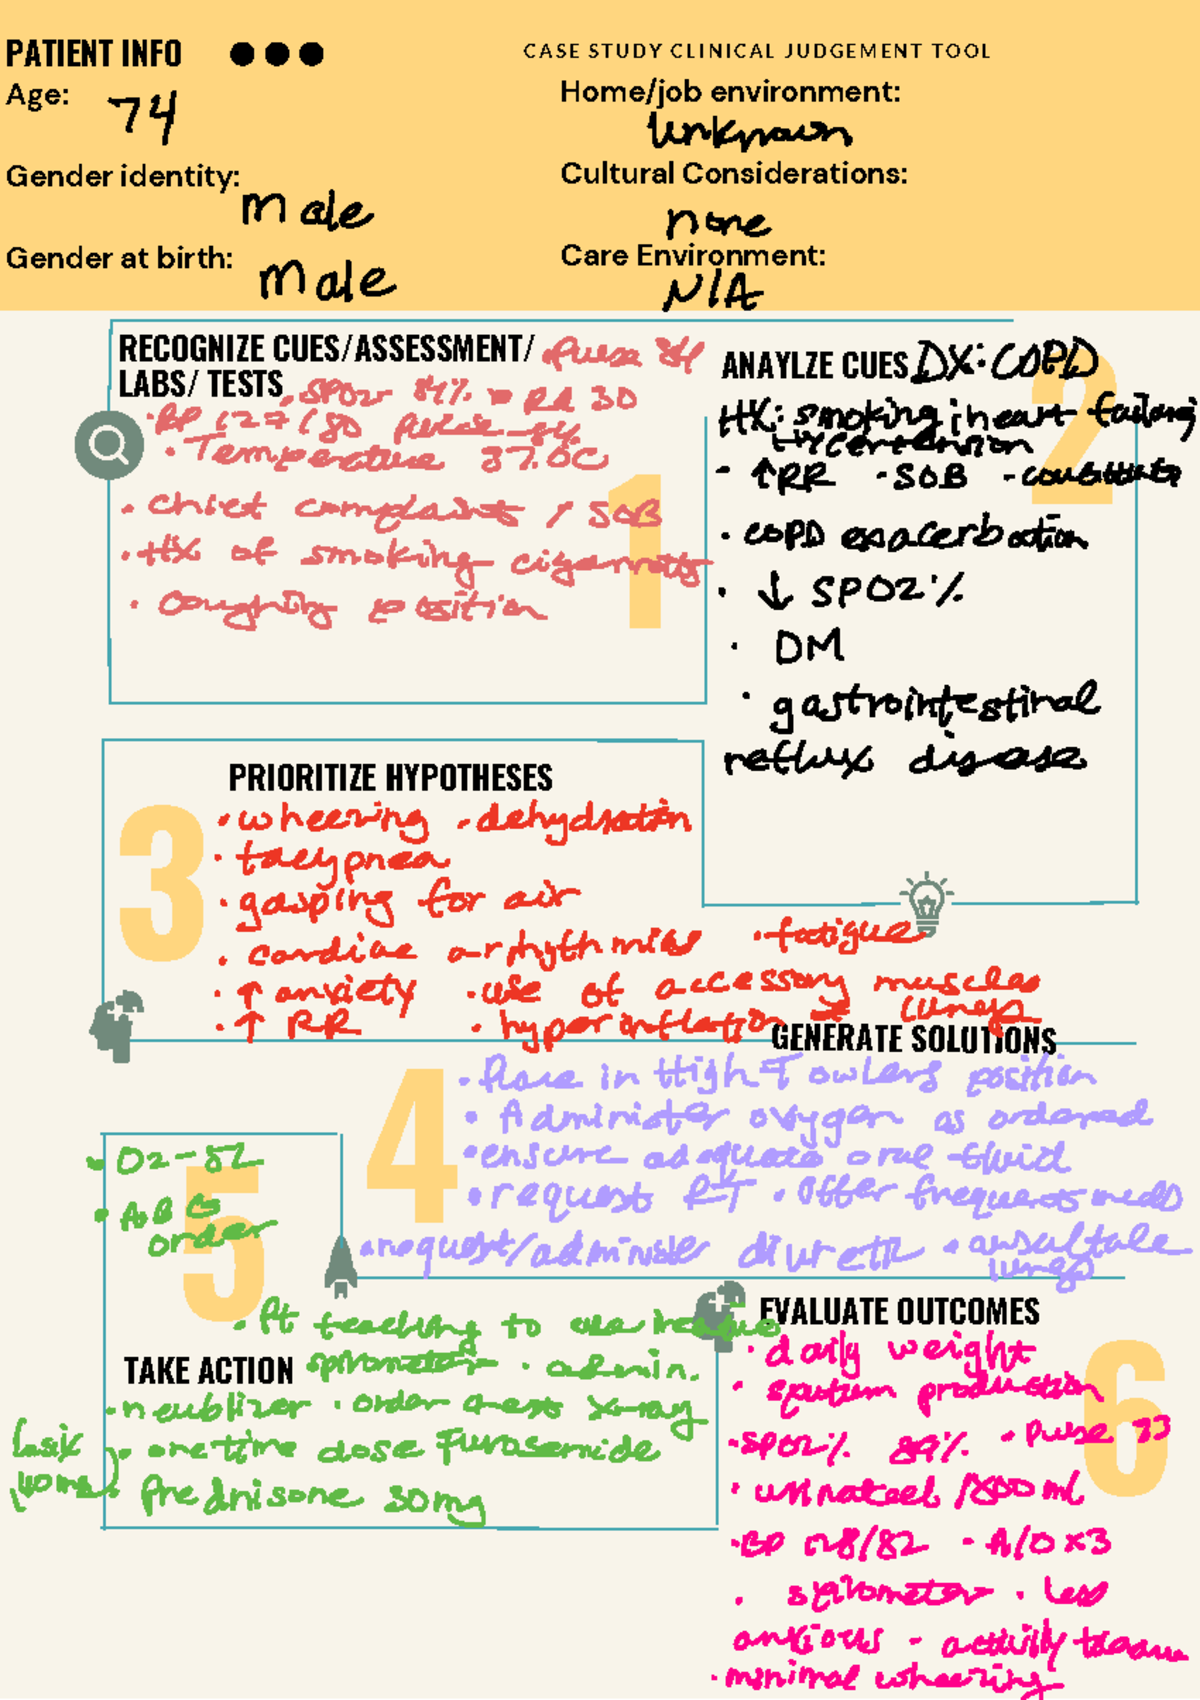 PATIENT INFO
CASE STUDY CLINICAL JUDGEMENT TOOL
Age: 74
Home/job environment:
unknown
Gender identity: male
Cultural Considerations:
none
Gender at birth: male
Care Environment:
N/A
RECOGNIZE CUES/ASSESSMENT/ · Pulse 84
LABS/ TESTS · SPO2 84% · RR 30
· BP 127/80
· Temperature 37.0C
· chief complaints / SOB
· HX of smoking
· coughing position
1
ANAYLZE CUES DX: COPD
HX: smoking; heart
- ↑RR - SOB
· COPD
· ↓ SPO2 %
· DM
· gastrointestinal
reflux disease
2
PRIORITIZE HYPOTHESES
3
· wheezing · dehydration
· tacypnea
· gasping for air
· cardiac · fatigue
· ↑ anxiety · use of accessory muscles
· ↑ RR · hyperinflation lungs
GENERATE SOLUTIONS
4
· Place in High Fowlers position
· Administer oxygen as ordered
· ensure adequate oral fluid
· request RT · Offer frequent meds
· request/administer
lungs
5
· O2 - 5L
· ABGs
order
· Pt teaching to use
TAKE ACTION spirometer · admin.
· neublizer · order chest x-ray
· onetime dose Furosemide
Lasix
40mg
· Prednisone 30mg
EVALUATE OUTCOMES
6
· daily weight
· sputum production
· SPO2% 89% · Pulse 73
· ml
· BP 128/82 - A/O x3
· spirometer · less
anxious - activity
· minimal wheezing